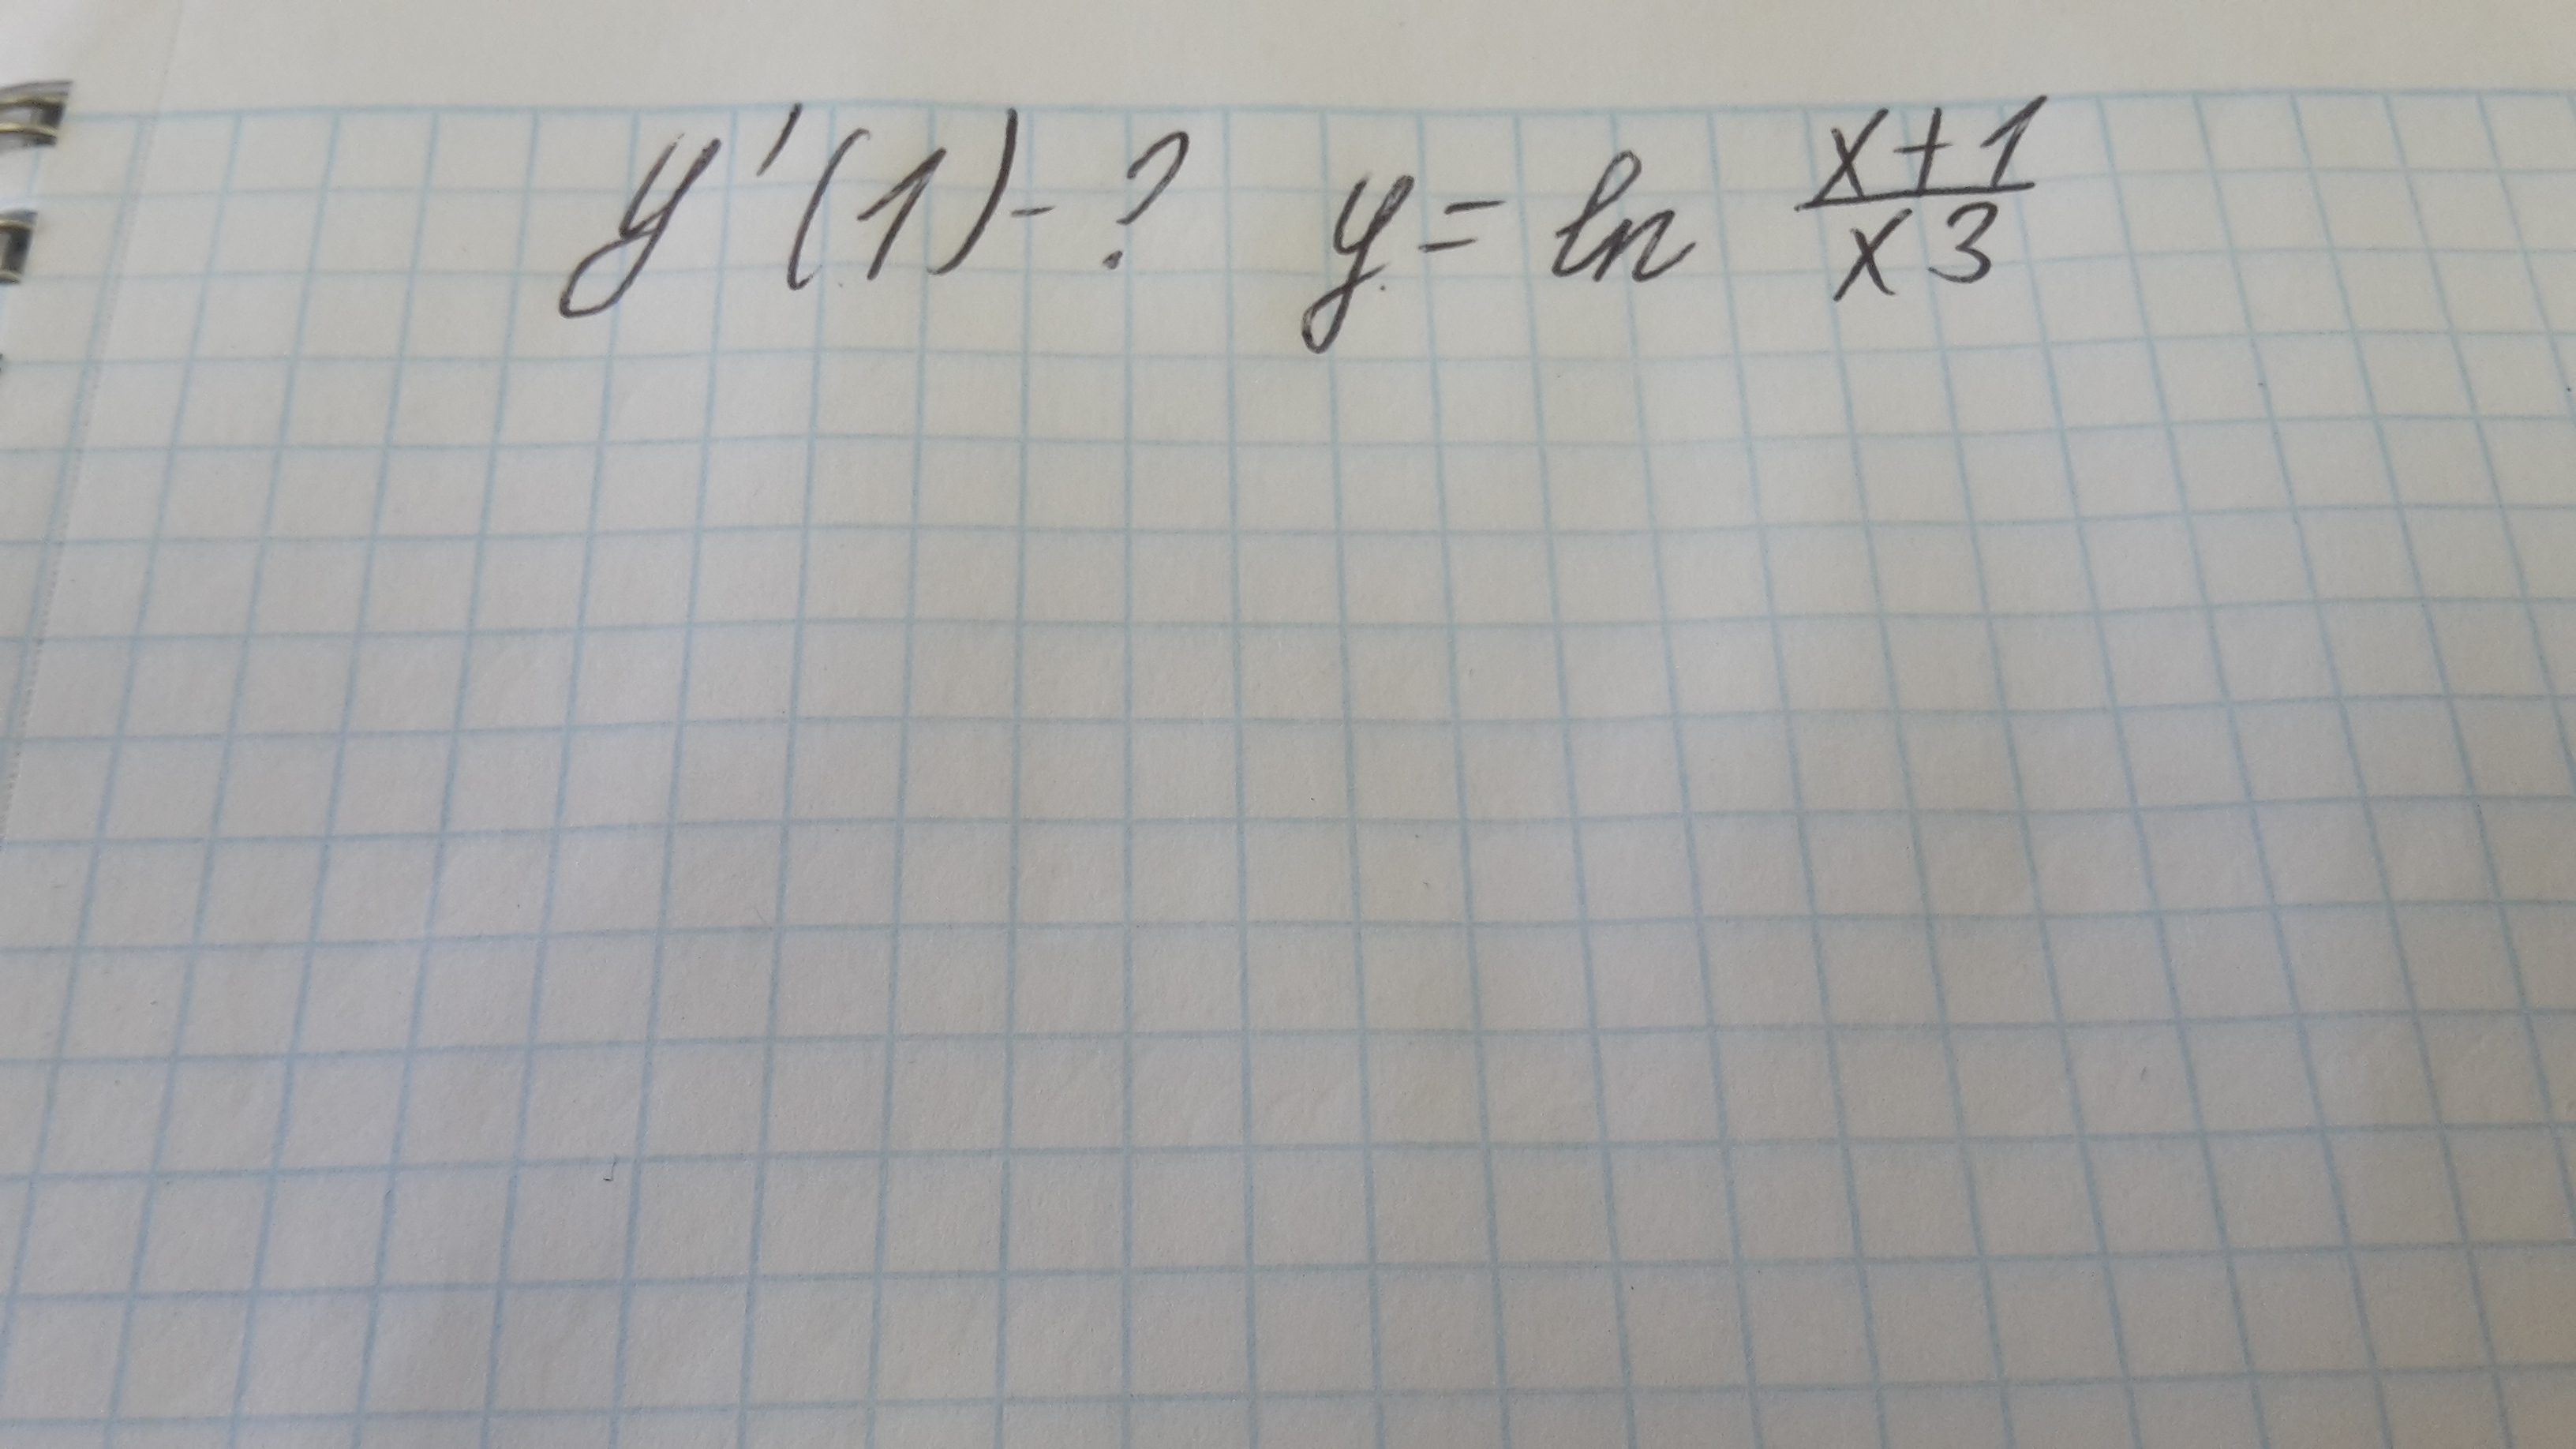 y'(1)-? y = ln \frac{x+1}{x3}